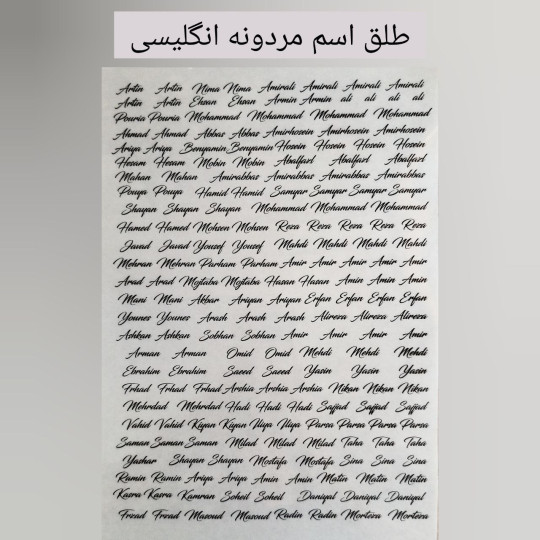 طلق اسم مردونه انگلیسی
Artin Artin Nima Nima Amirali Amirali Amirali Amirali
Artin Artin Ehsan Ehsan Armin Armin ali ali ali ali
Pouria Pouria Mohammad Mohammad Mohammad Mohammad
Ahmad Ahmad Abbas Abbas Amirhosein Amirhosein Amirhosein
Ariya Ariya Benyamin Benyamin Hosein Hosein Hosein Hosein
Hesam Hesam Mobin Mobin Abalfazl Abalfazl Abalfazl
Mahan Mahan Amirabbas Amirabbas Amirabbas Amirabbas
Pouya Pouya Hamid Hamid Samyar Samyar Samyar Samyar
Shayan Shayan Shayan Mohammad Mohammad Mohammad
Hamed Hamed Mohsen Mohsen Reza Reza Reza Reza Reza
Javad Javad Yousef Yousef Mahdi Mahdi Mahdi Mahdi
Mehran Mehran Parham Parham Amir Amir Amir Amir Amir
Arad Arad Mojtaba Mojtaba Hasan Hasan Amin Amin Amin
Mani Mani Akbar Ariyan Ariyan Erfan Erfan Erfan Erfan
Younes Younes Arash Arash Arash Alireza Alireza Alireza
Ashkan Ashkan Sobhan Sobhan Amir Amir Amir Amir
Arman Arman Omid Omid Mehdi Mehdi Mehdi
Ebrahim Ebrahim Saeed Saeed Yasin Yasin Yasin
Frhad Frhad Frhad Arshia Arshia Arshia Nikan Nikan Nikan
Mehrdad Mehrdad Hadi Hadi Hadi Sajjad Sajjad Sajjad
Vahid Vahid Kiyan Kiyan Iliya Iliya Parsa Parsa Parsa Parsa
Saman Saman Saman Milad Milad Milad Taha Taha Taha
Yashar Shayan Shayan Mostafa Mostafa Sina Sina Sina
Ramin Ramin Ariya Ariya Amin Amin Matin Matin Matin
Kasra Kasra Kamran Soheil Soheil Daniyal Daniyal Daniyal
Frzad Frzad Masoud Masoud Radin Radin Morteza Morteza